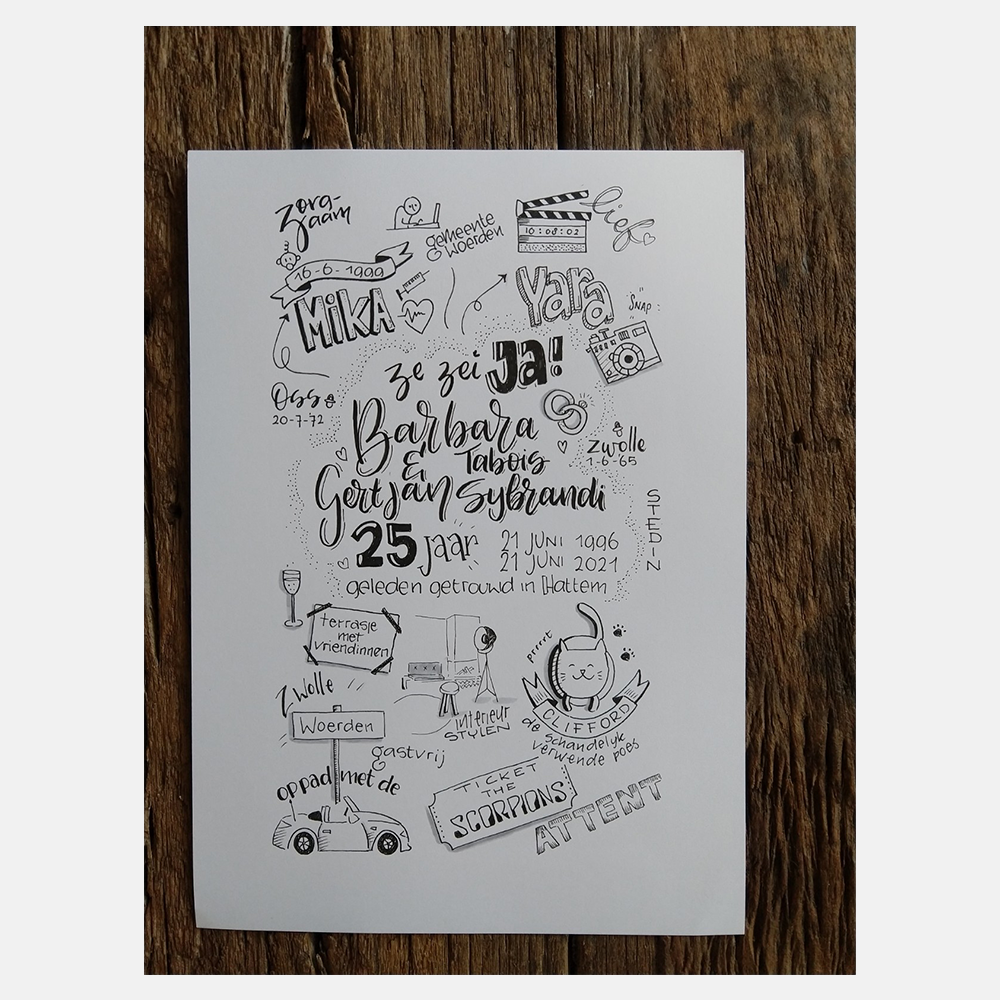 Zorg-
zaam
gemeente
Woerden
10:08:02
lief
16-6-1999
MiKA
Yara
SNAP
ze zei Ja!
Oss
20-7-72
Barbara
& Tabois
Gertjan Sybrandi
Zwolle
1-6-65
STEDIN
25 jaar
21 JUNI 1996
21 JUNI 2021
geleden getrouwd in Hattem
terrasje
met
vriendinnen
prrrrt
CLIFFORD
de schandelijk
verwende poes
interieur
STYLEN
Zwolle
Woerden
gastvrij
op pad met de
TICKET
THE
SCORPIONS
ATTENT